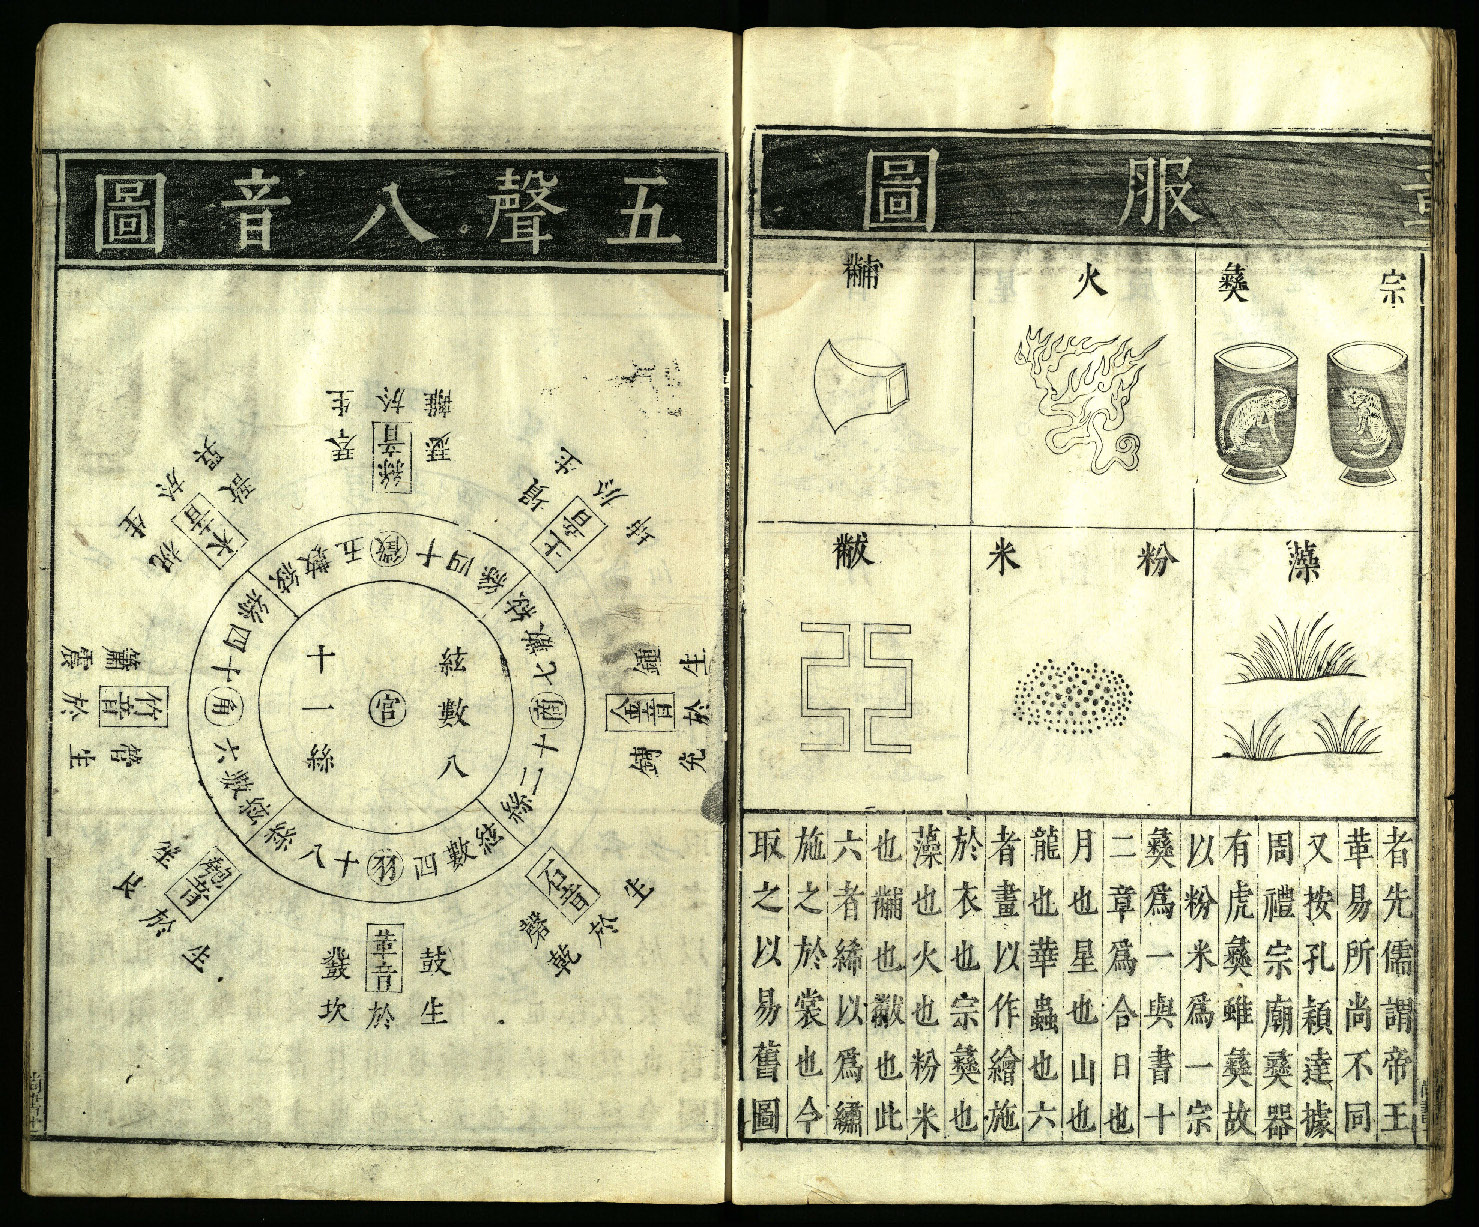 服圖
宗彝
火
黼
藻
粉米
黻
者先儒謂帝王
革易所尚不同
又按孔穎達據
周禮宗廟彝器
有虎彝蜼彝故
以粉米爲一宗
彝爲一與書十
二章爲合日也
月也星也山也
龍也華蟲也六
者畫以作繪施
於衣也宗彝也
藻也火也粉米
也黼也黻也此
六者絺以爲繡
施之於裳也今
取之以易舊圖
五聲八音圖
絲音
瑟琴
生於離
土音
塤
金音
鐘鎛
生於兌
石音
磬
生於乾
革音
鼓鼗
生於坎
匏音
笙
生於艮
竹音
簫管
生於震
木音
柷敔
生於巽
徵
絃數五十四絲
商
絃數七十二絲
羽
絃數四十八絲
角
絃數六十四絲
宮
絃數八
十一絲